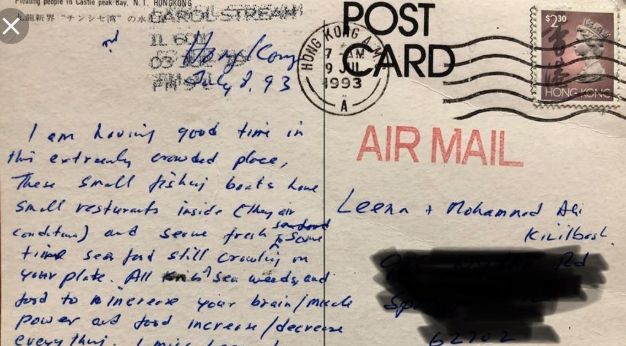 Floating people in Castle peak Bay, N.T. HONGKONG
九龍新界 "ナンシヒ湾" の水
CAROL STREAM
IL 601
Hong Kong
July 8, 93
I am having good time in
this extremely crowded place,
These small fishing boats have
small resturants inside (they air
condition) and serve fresh seafood
time sea food still crawling on
your plate. All sea weeds and
food to increase your brain/muscle
power and food increase/decrease
everything. I miss
POST
CARD
HONG KONG
7 AM
9 JUL
1993
A
$2.30
香港
HONG KONG
AIR MAIL
Leena + Mohammed Ali
Kizilbash
Rd
Sp
62702